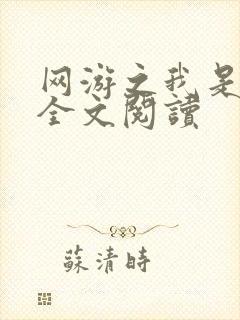 网游之我是
全文閱讀
蘇清時